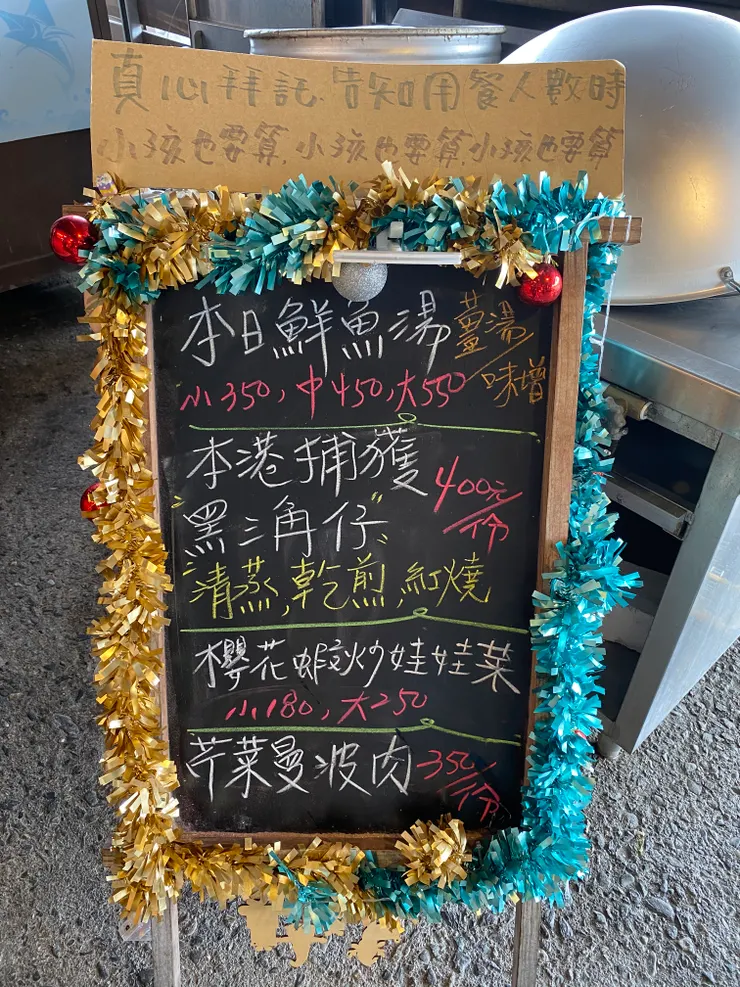 真心拜託.告知用餐人數時
小孩也要算,小孩也要算,小孩也要算
本日鮮魚湯 薑湯/味增
小350,中450,大550
本港捕獲
"黑三角仔" 400元/份
清蒸,乾煎,紅燒
櫻花蝦炒娃娃菜
小180,大250
芹菜曼波肉 350/份